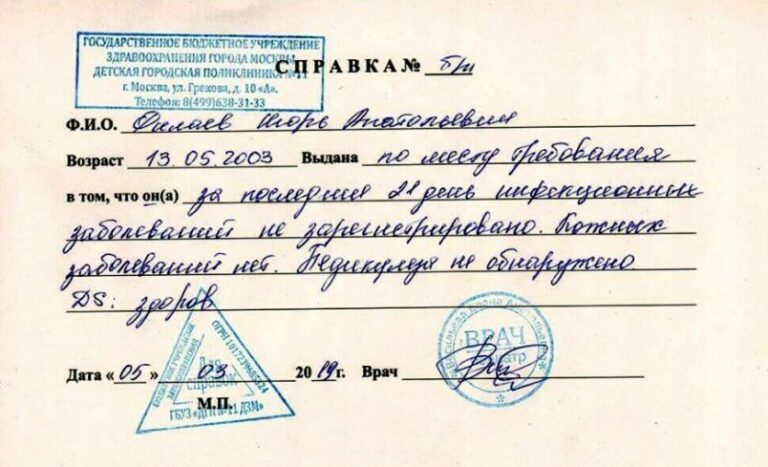 ГОСУДАРСТВЕННОЕ БЮДЖЕТНОЕ УЧРЕЖДЕНИЕ
ЗДРАВООХРАНЕНИЯ ГОРОДА МОСКВЫ
ДЕТСКАЯ ГОРОДСКАЯ ПОЛИКЛИНИКА № 11
г. Москва, ул. Грекова, д. 10 «А».
Телефон: 8(499)638-31-33
СПРАВКА № б/н
Ф.И.О. Филаев Игорь Анатольевич
Возраст 13.05.2003 Выдана по месту требования
в том, что он(а) за последний 21 день инфекционных
заболеваний не зарегистрировано. Кожных
заболеваний нет. Педикулеза не обнаружено.
DS: здоров
Дата «05» 03 2019г. Врач
М.П.
Для
справок
ГБУЗ «ДГП № 11 ДЗМ»
ВРАЧ